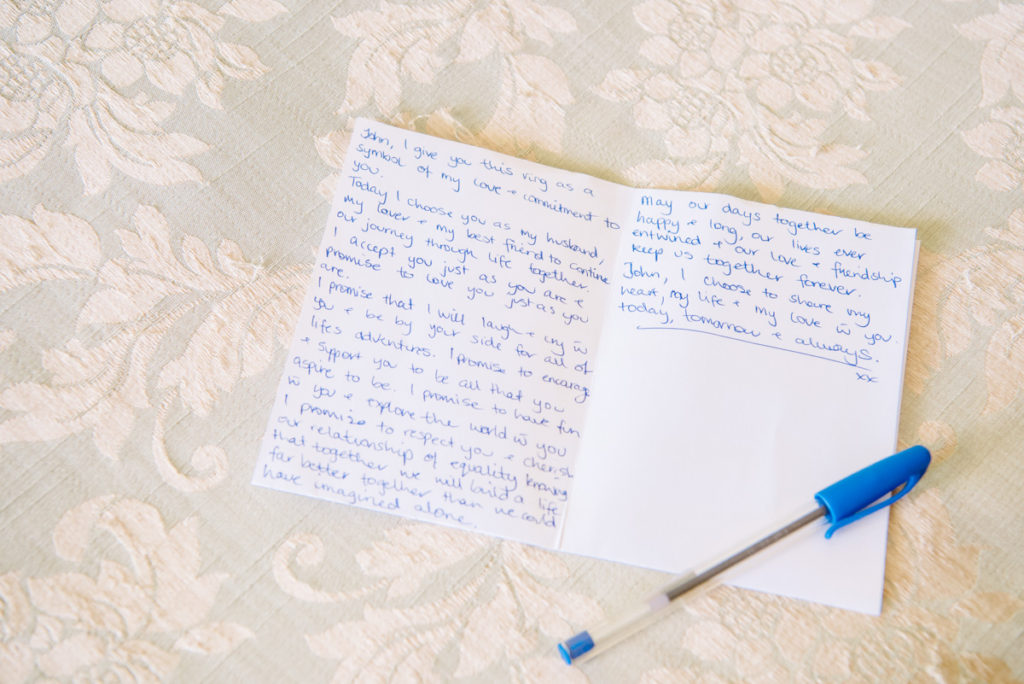 John, I give you this ring as a
symbol of my love & commitment to
you.
Today I choose you as my husband,
my lover & my best friend to contine
our journey through life together.
I accept you just as you are &
promise to love you just as you
are.
I promise that I will laugh & cry w̄
you & be by your side for all of
lifes adventures. I promise to encourage
& support you to be all that you
aspire to be. I promise to have fun
w̄ you & explore the world w̄ you
I promise to respect you & cherish
our relationship of equality knowing
that together we will build a life
far better together than we could
have imagined alone.
May our days together be
happy & long, our lives ever
entwined & our love & friendship
keep us together forever.
John, I choose to share my
heart, my life & my love w̄ you.
today, tomorrow & always.
xx